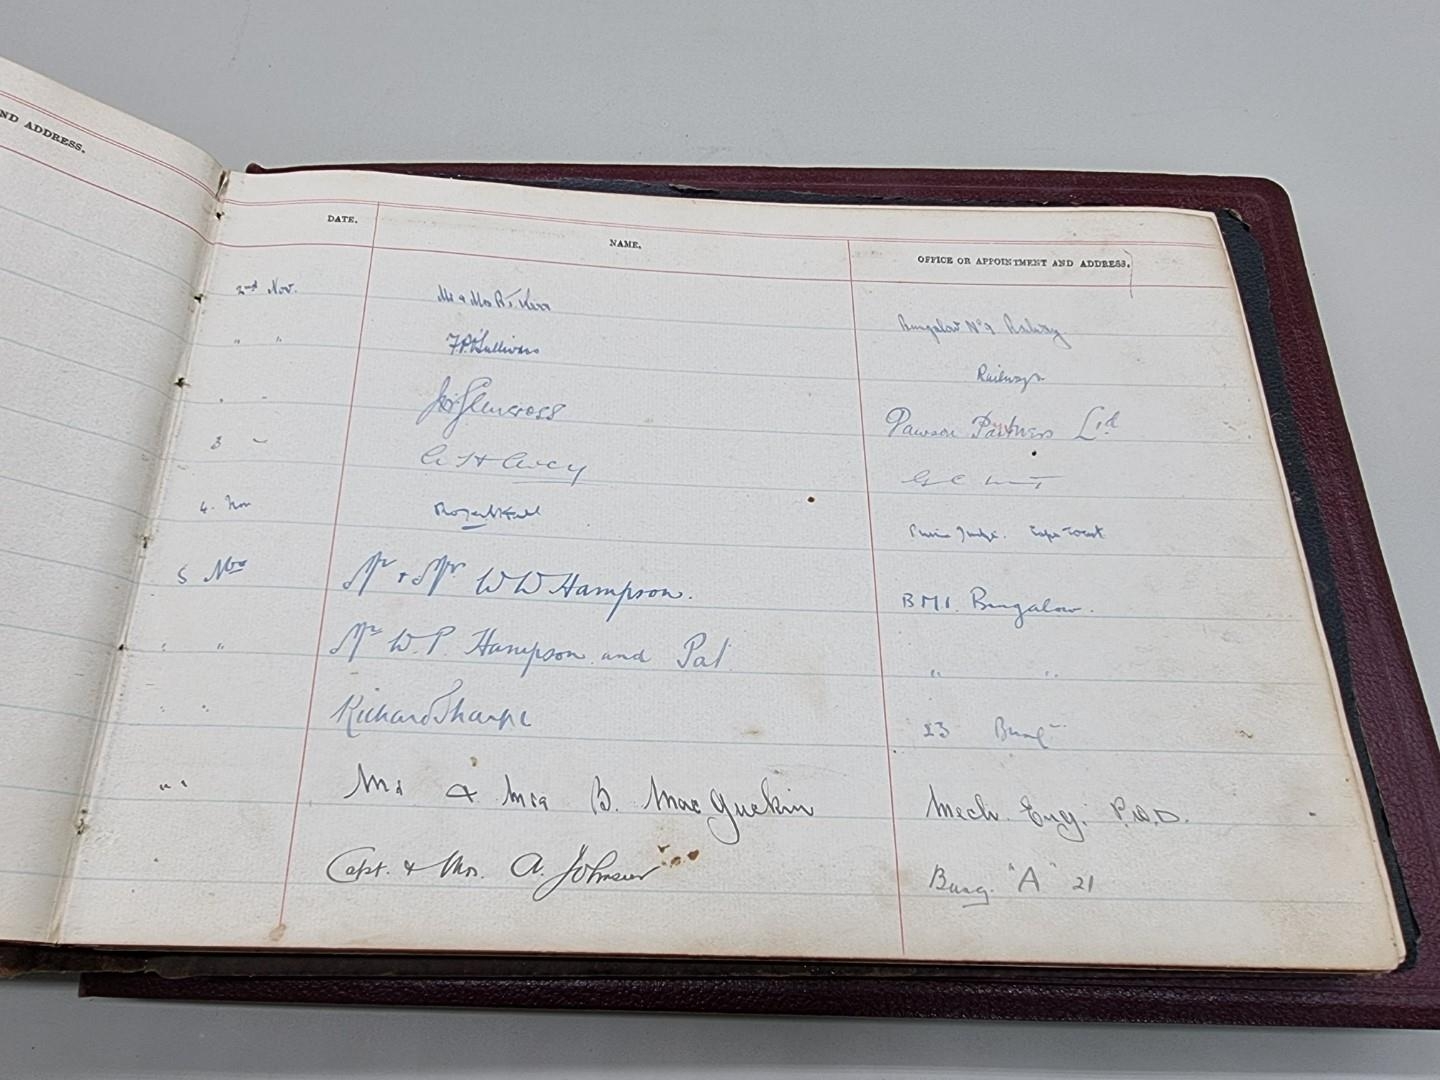 ND ADDRESS.
DATE. NAME. OFFICE OR APPOINTMENT AND ADDRESS.
2nd Nov. Mr & Mrs R. T. Kerr Bungalow No 9 Railway
" " F.P. O'Sullivan Railways
" " Glencross Pawson Partners Ltd
3 "
4. Nov Puisne Judge. Cape Coast
5 Nov Mr & Mrs W W Hampson. BM1. Bungalow.
" " Mr W. P. Hampson and Pat. " "
" " Richard Sharpe 23 Bung
" " Mr & Mrs B. MacGuckin Mech. Eng. P.W.D.
Capt. & Mrs. A. Johnson Bung. "A" 21